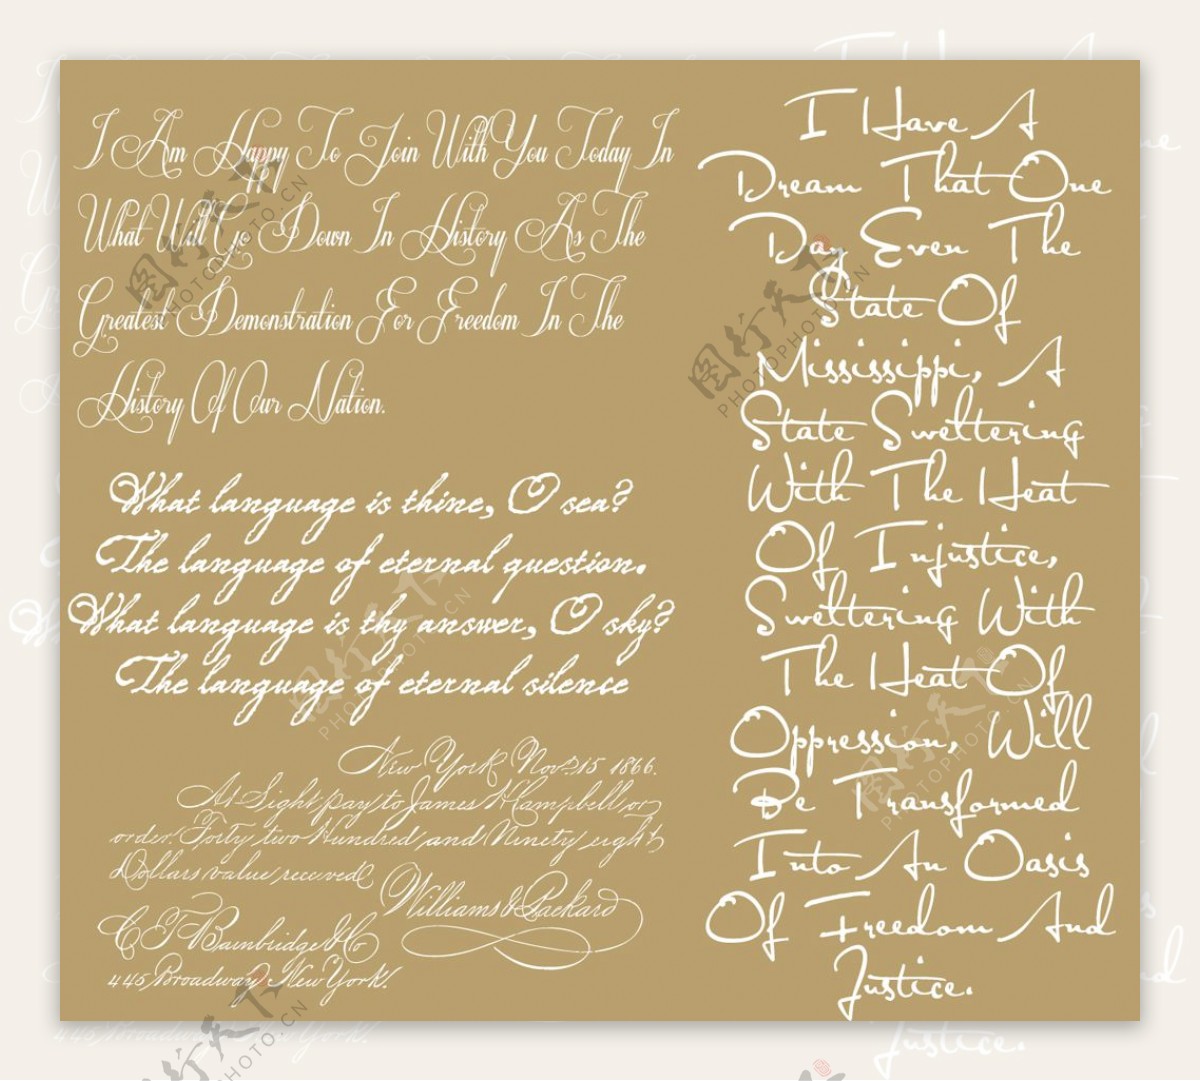 I Am Happy To Join With You Today In
What Will Go Down In History As The
Greatest Demonstration For Freedom In The
History Of Our Nation.
What language is thine, O sea?
The language of eternal question.
What language is thy answer, O sky?
The language of eternal silence
New York Nov. 15 1866.
At Sight pay to James H Campbell, or
order. Forty two Hundred and Ninety eight
Dollars value received
Williams & Packard
C E T Bambridge & Co
445 Broadway New York.
I Have A
Dream That One
Day Even The
State Of
Mississippi, A
State Sweltering
With The Heat
Of Injustice,
Sweltering With
The Heat Of
Oppression, Will
Be Transformed
Into An Oasis
Of Freedom And
Justice.
图行天下
PHOTOPHOTO.CN